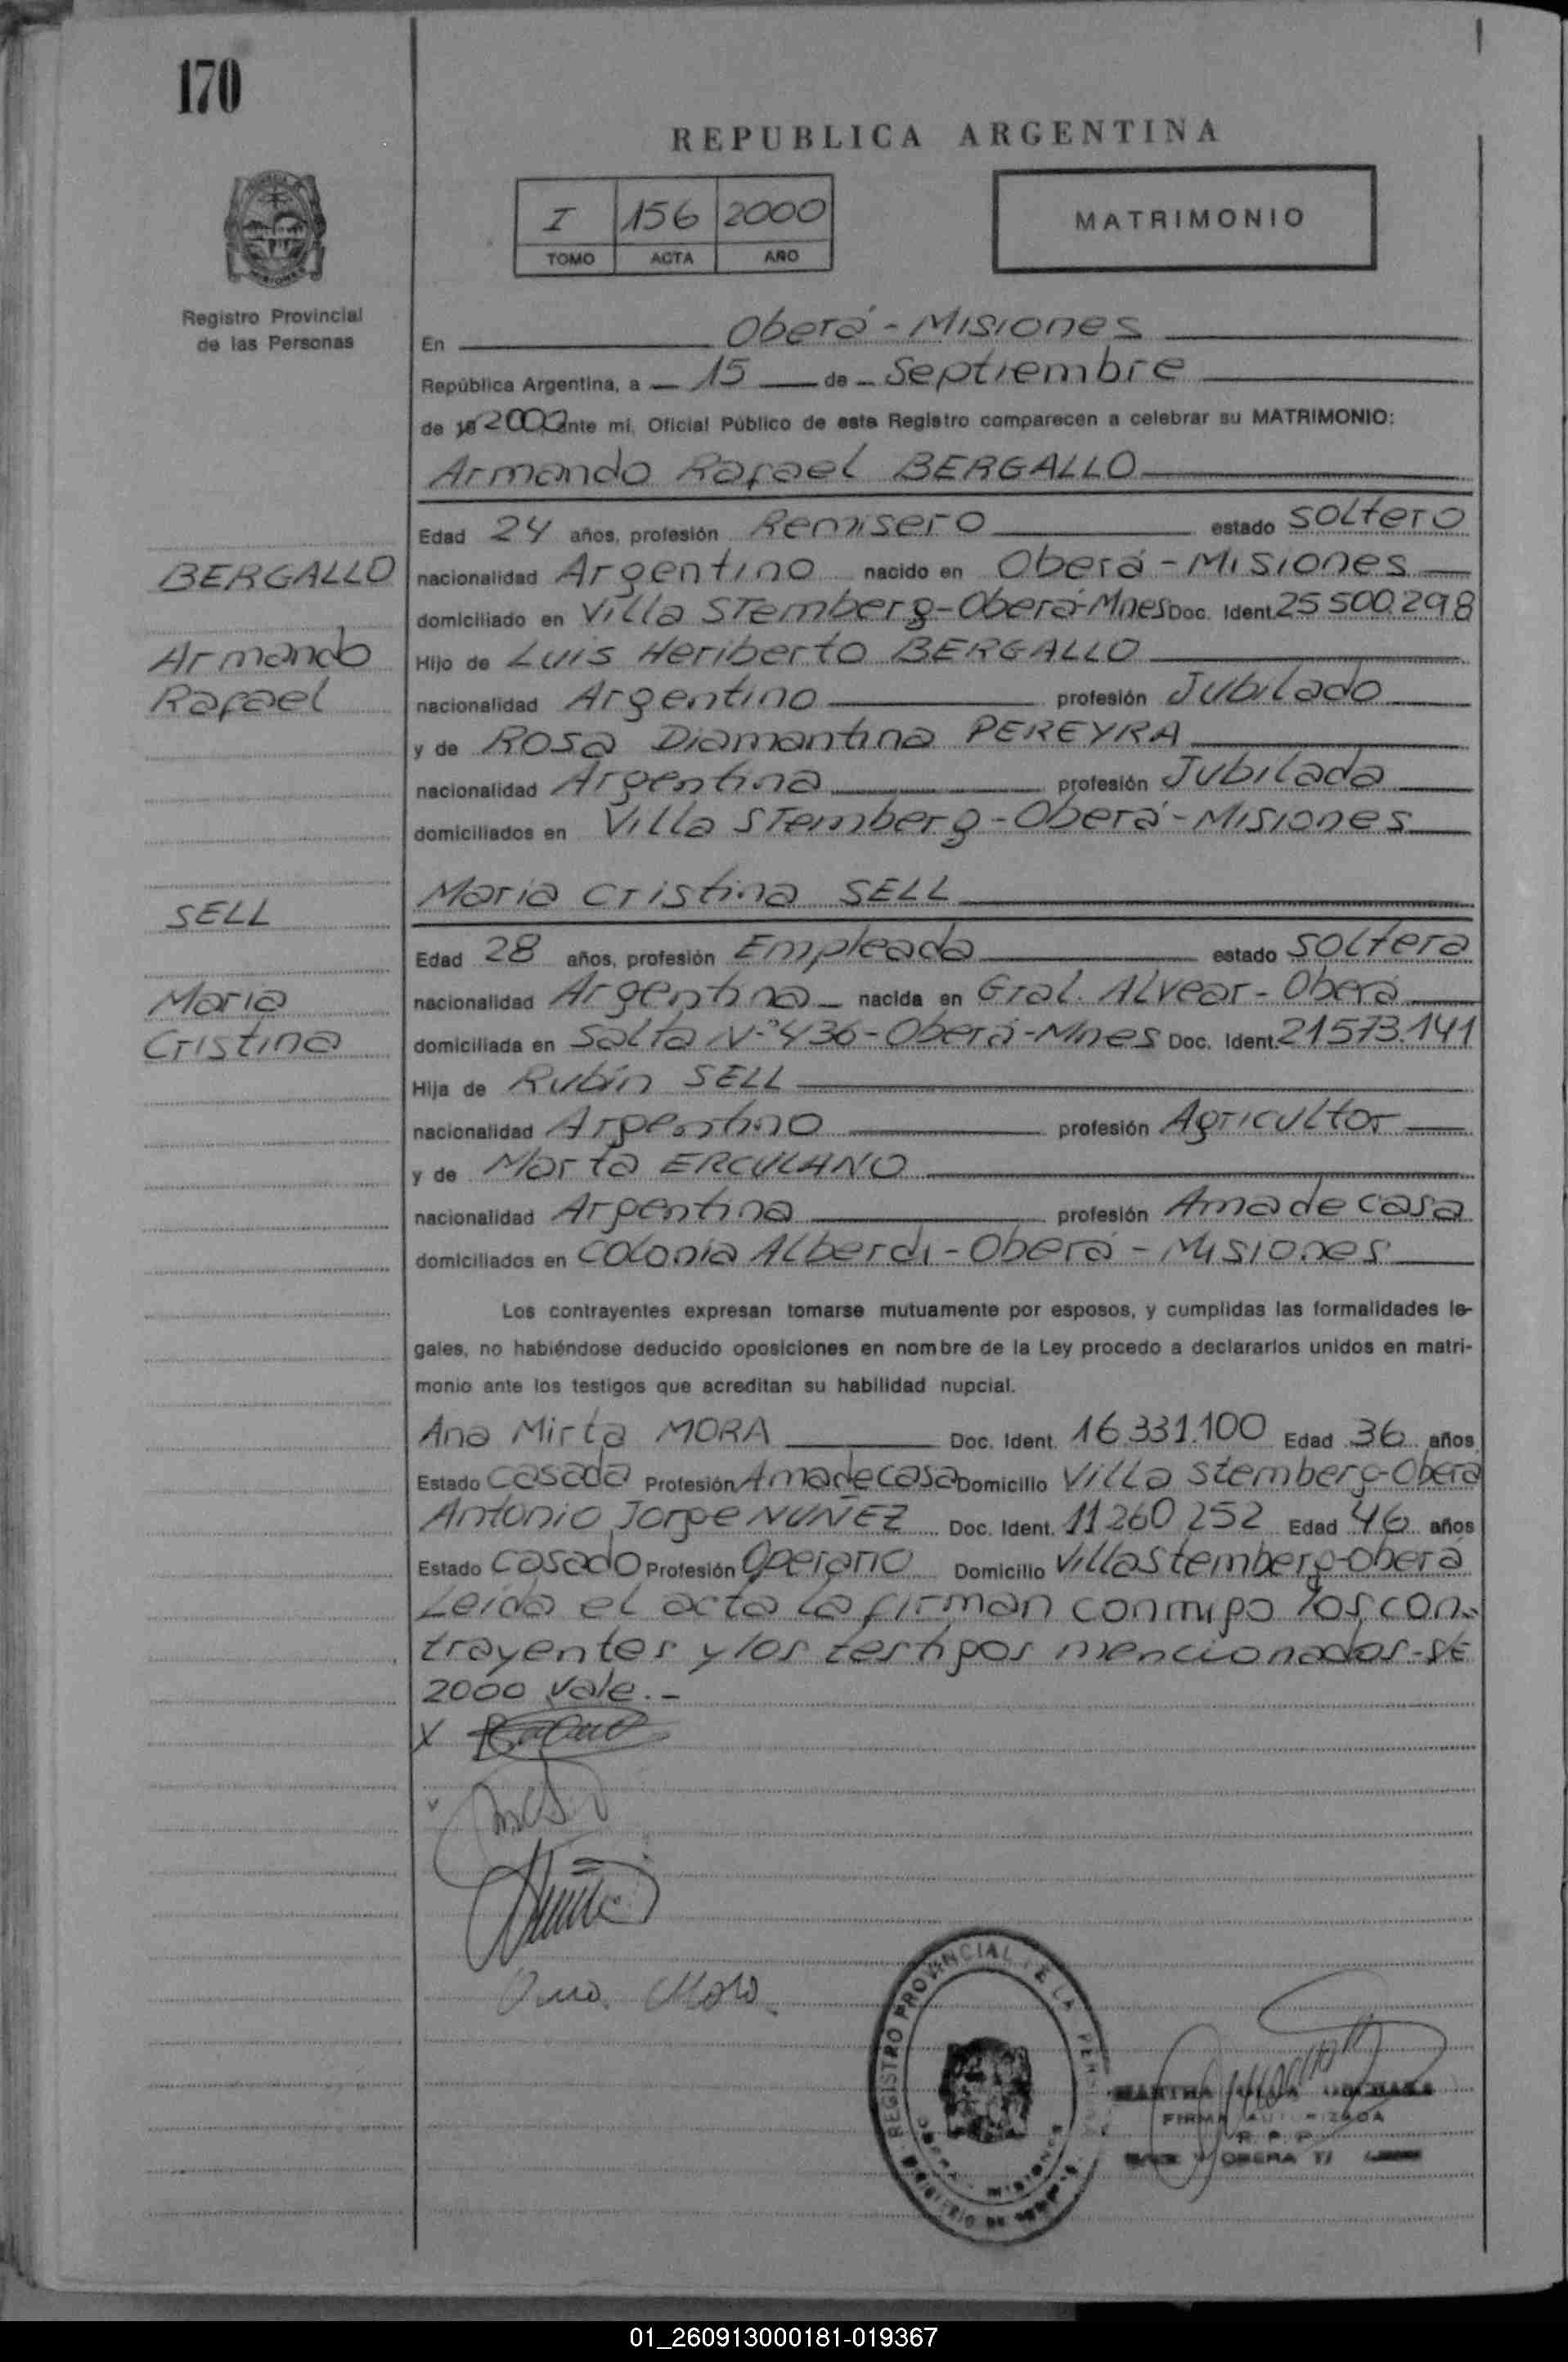 170
REPUBLICA ARGENTINA
I 156 2000
TOMO ACTA AÑO
MATRIMONIO
Registro Provincial
de las Personas
En Oberá - Misiones
República Argentina, a 15 de Septiembre
de 19 2000 ante mí, Oficial Público de este Registro comparecen a celebrar su MATRIMONIO:
Armando Rafael BERGALLO
Edad 24 años, profesión Remisero estado soltero
BERGALLO
nacionalidad Argentino nacido en Oberá - Misiones
domiciliado en Villa STemberg - Oberá - Mnes Doc. Ident. 25 500.298
Armando
Hijo de Luis Heriberto BERGALLO
Rafael
nacionalidad Argentino profesión Jubilado
y de Rosa Diamantina PEREYRA
nacionalidad Argentina profesión Jubilada
domiciliados en Villa STemberg - Oberá - Misiones
Maria Cristina SELL
SELL
Edad 28 años, profesión Empleada estado soltera
Maria
nacionalidad Argentina nacida en Gral. Alvear - Oberá
Cristina
domiciliada en Salta N° 436 - Oberá - Mnes Doc. Ident. 21573.141
Hija de Rubín SELL
nacionalidad Argentino profesión Agricultor
y de Marta ERCULANO
nacionalidad Argentina profesión Ama de casa
domiciliados en Colonia Alberdi - Oberá - Misiones
Los contrayentes expresan tomarse mutuamente por esposos, y cumplidas las formalidades le-
gales, no habiéndose deducido oposiciones en nombre de la Ley procedo a declararlos unidos en matri-
monio ante los testigos que acreditan su habilidad nupcial.
Ana Mirta MORA Doc. Ident. 16.331.100 Edad 36 años
Estado casada Profesión Ama de casa Domicilio Villa Stemberg - Oberá
Antonio Jorge NUÑEZ Doc. Ident. 11 260 252 Edad 46 años
Estado casado Profesión Operario Domicilio Villa Stemberg - Oberá
Leída el acta la firman conmigo los con-
trayentes y los testigos mencionados - S/E
2000 vale. -
X
Ana Mora
REGISTRO PROVINCIAL DE LA PER
MARTHA
FIRMA AUTORIZADA
R. P. P.
OBERA
01_260913000181-019367